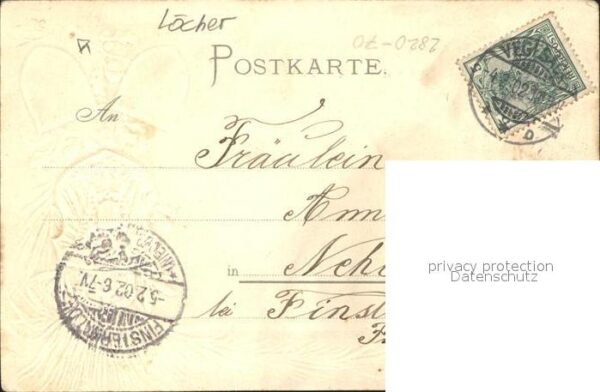 Löcher
OZ-0282
POSTKARTE.
An
Fräulein
Ann
in Neh
bei Finst
5.2.02.6-7V
FINSTERWALDE
privacy protection
Datenschutz